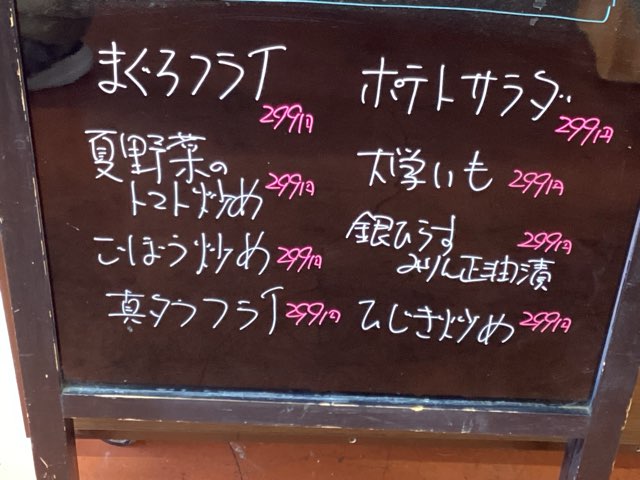 まぐろフライ
299円
夏野菜の
トマト炒め 299円
ごぼう炒め 299円
真タラフライ 299円
ポテトサラダ
299円
大学いも 299円
銀ひらす 299円
みりん正油漬
ひじき炒め 299円